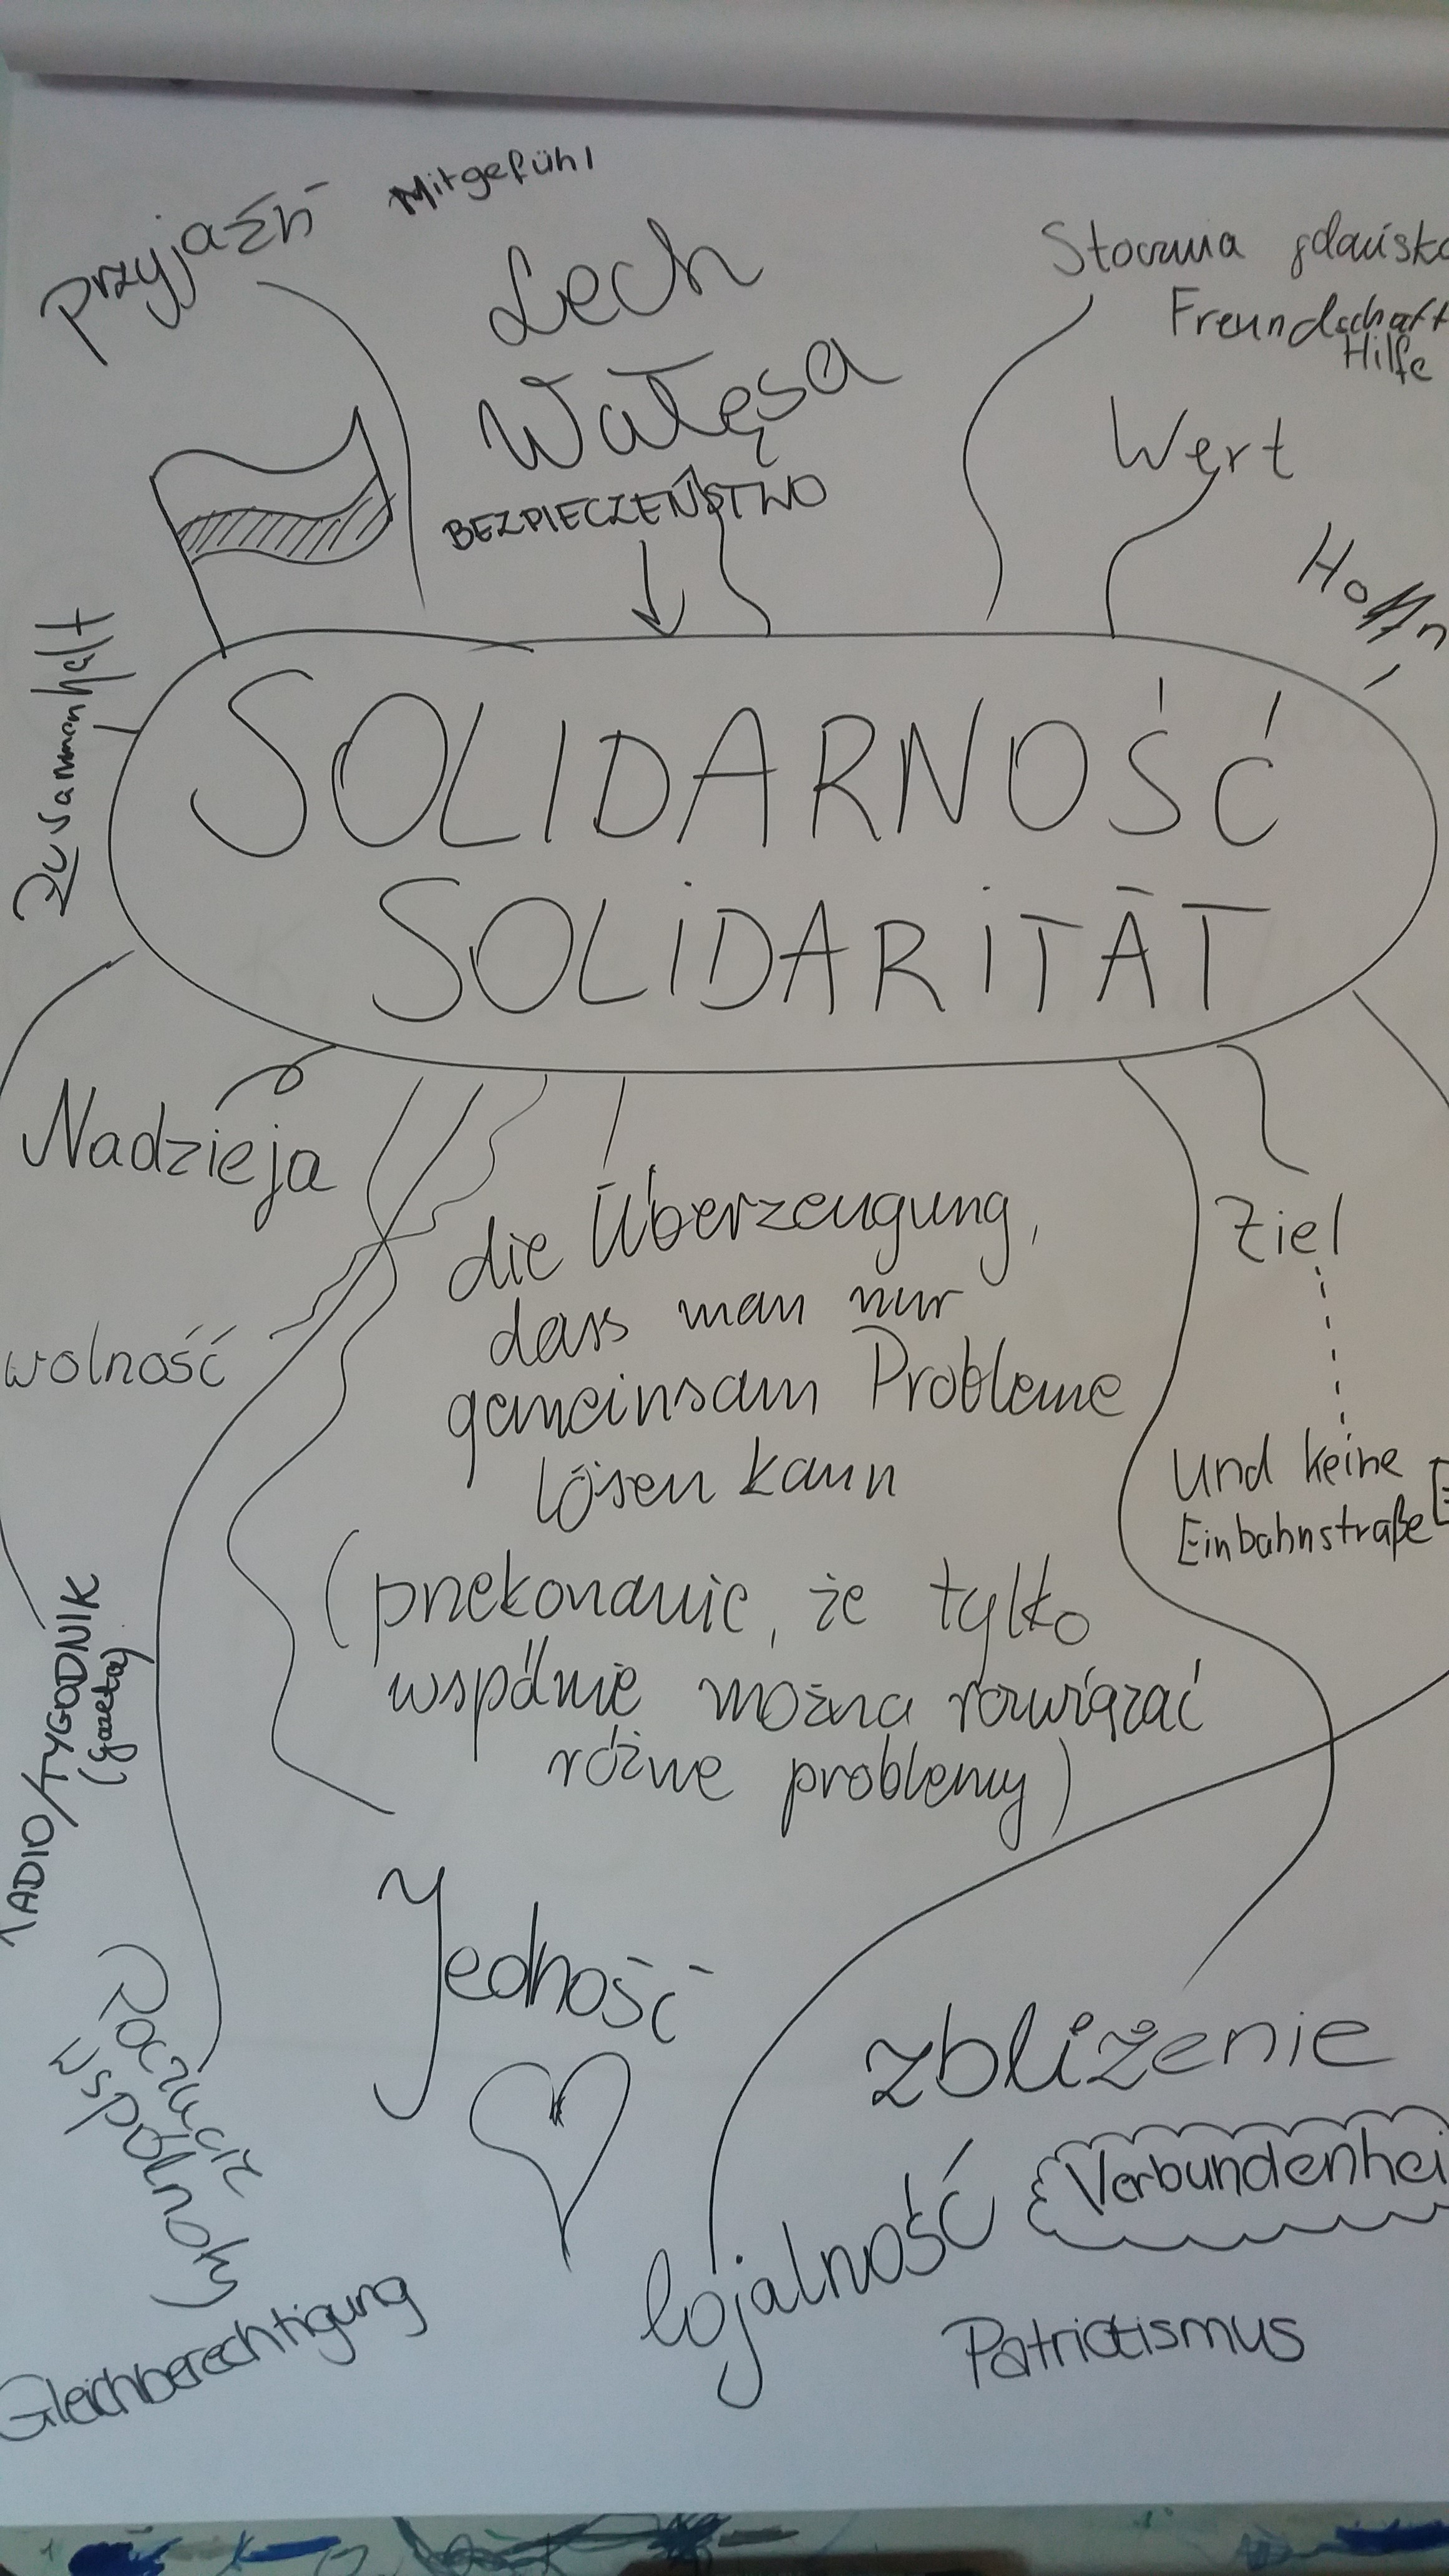 Mitgefühl
Przyjaźń
Lech
Wałęsa
BEZPIECZEŃSTWO
Stocznia gdańska
Freundschaft
Hilfe
Wert
Hoffn
Zusammenhalt
SOLIDARNOŚĆ
SOLIDARITÄT
Nadzieja
wolność
die Überzeugung,
dass man nur
gemeinsam Probleme
lösen kann
(przekonanie, że tylko
wspólnie można rozwiązać
różne problemy)
Ziel
und keine
Einbahnstraße
RADIO/TYGODNIK
(gazeta)
Poczucie
wspólnoty
Jedność
zbliżenie
Verbundenhei
lojalność
Gleichberechtigung
Patriotismus